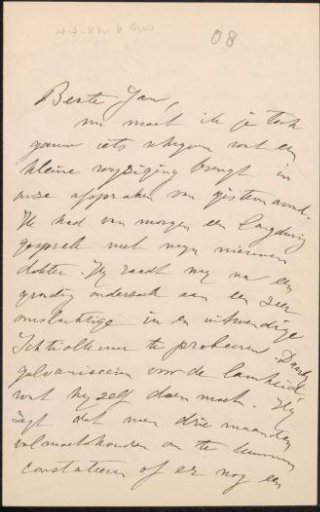 08
Beste Jan,
nu moet ik je toch
gauw iets schrijven wat een
kleine wijziging brengt in
onze afspraken van gisteravond.
Ik had van morgen een langdurig
gesprek met mijn nieuwen
dokter. Hij raadt mij na een
grondig onderzoek aan een zeer
omslachtige in en uitwendige
Ichtiolkuur te probeeren. Daarbij
galvaniseeren voor de lamheid,
wat hij zelf doen moet. Hij
zegt dat men drie maanden
vol moet houden om te kunnen
constateeren of er nog een